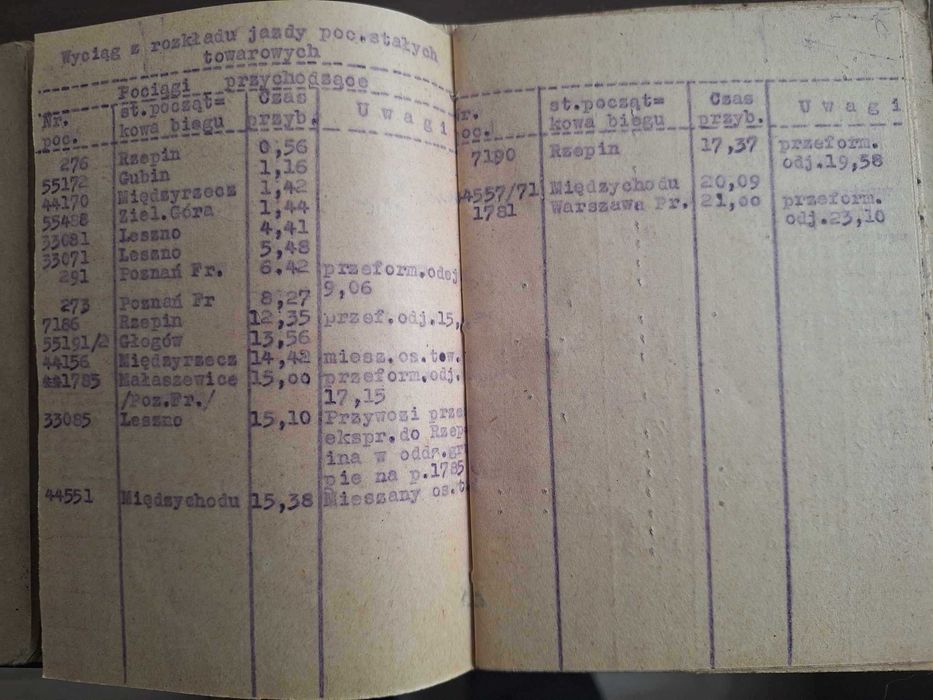 Wyciąg z rozkładu jazdy poc.stałych
towarowych
Pociągi przychodzące
Nr.
poc. st.począt=
kowa biegu Czas
przyb. U w a g i
276 Rzepin 0,56
55172 Gubin 1,16
44170 Międzyrzecz 1,42
55488 Ziel.Góra 1,44
33081 Leszno 4,41
33071 Leszno 5,48
291 Poznań Fr. 6.42 przeform.odej
9,06
273 Poznań Fr 8,27
7186 Rzepin 12,35 przef.odj.15,
55191/2 Głogów 13,56
44156 Międzyrzecz 14,42 miesz.os.tow.
1785 Małaszewice 15,00 przeform.odj.
/Poz.Fr./ 17,15
33085 Leszno 15,10 Przywozi prze
ekspr.do Rzep
ina w oddz.gru
pie na p.1785
44551 Międzychodu 15,38 Mieszany os.t
Nr.
poc. st.począt=
kowa biegu Czas
przyb. U w a g i
7190 Rzepin 17,37 przeform.
odj.19,58
44557/71 Międzychodu 20,09
1781 Warszawa Pr. 21,00 przeform.
odj.23,10